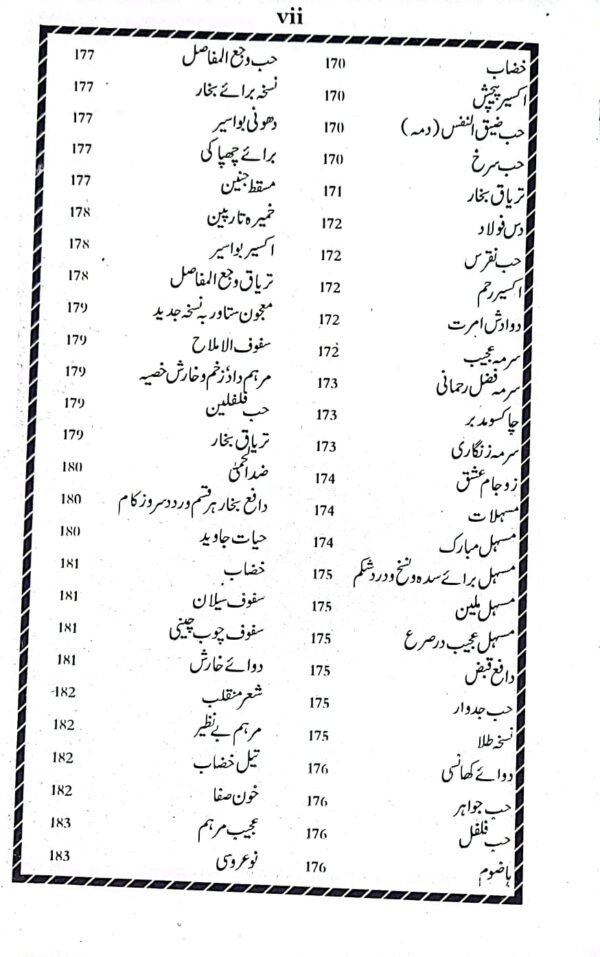 vii
خضاب 170
اکسیر پیچش 170
حب ضیق النفس (دمہ) 170
حب سرخ 170
تریاق بخار 171
دس فولاد 172
حب نقرس 172
اکسیر رحم 172
دوادش امرت 172
سرمہ عجیب 172
سرمہ فضل رحمانی 173
چاکسو مدبر 173
سرمہ زنگاری 173
زوجام عشق 174
مسہلات 174
مسہل مبارک 174
مسہل برائے سدہ ونسخ ودرد شکم 175
مسہل ملین 175
مسہل عجیب در صرع 175
دافع قبض 175
حب جدوار 175
نسخہ طلا 175
دوائے کھانسی 176
حب جواہر 176
حب فلفل 176
ہاضوم 176
حب وجع المفاصل 177
نسخہ برائے بخار 177
دھونی بواسیر 177
برائے چھپاکی 177
مسقط جنین 177
خمیرہ تارپین 178
اکسیر بواسیر 178
تریاق وجع المفاصل 178
معجون ستاور بہ نسخہ جدید 179
سفوف الاملاح 179
مرہم داد، زخم و خارش خصیہ 179
حب فلفلین 179
تریاق بخار 179
ضد الحمیٰ 180
دافع بخار ہر قسم ورد دسر وزکام 180
حیات جاوید 180
خضاب 181
سفوف سیلان 181
سفوف چوب چینی 181
دوائے خارش 181
شعر منقلب 182
مرہم بے نظیر 182
تیل خضاب 182
خون صفا 182
عجیب مرہم 183
نوعروسی 183